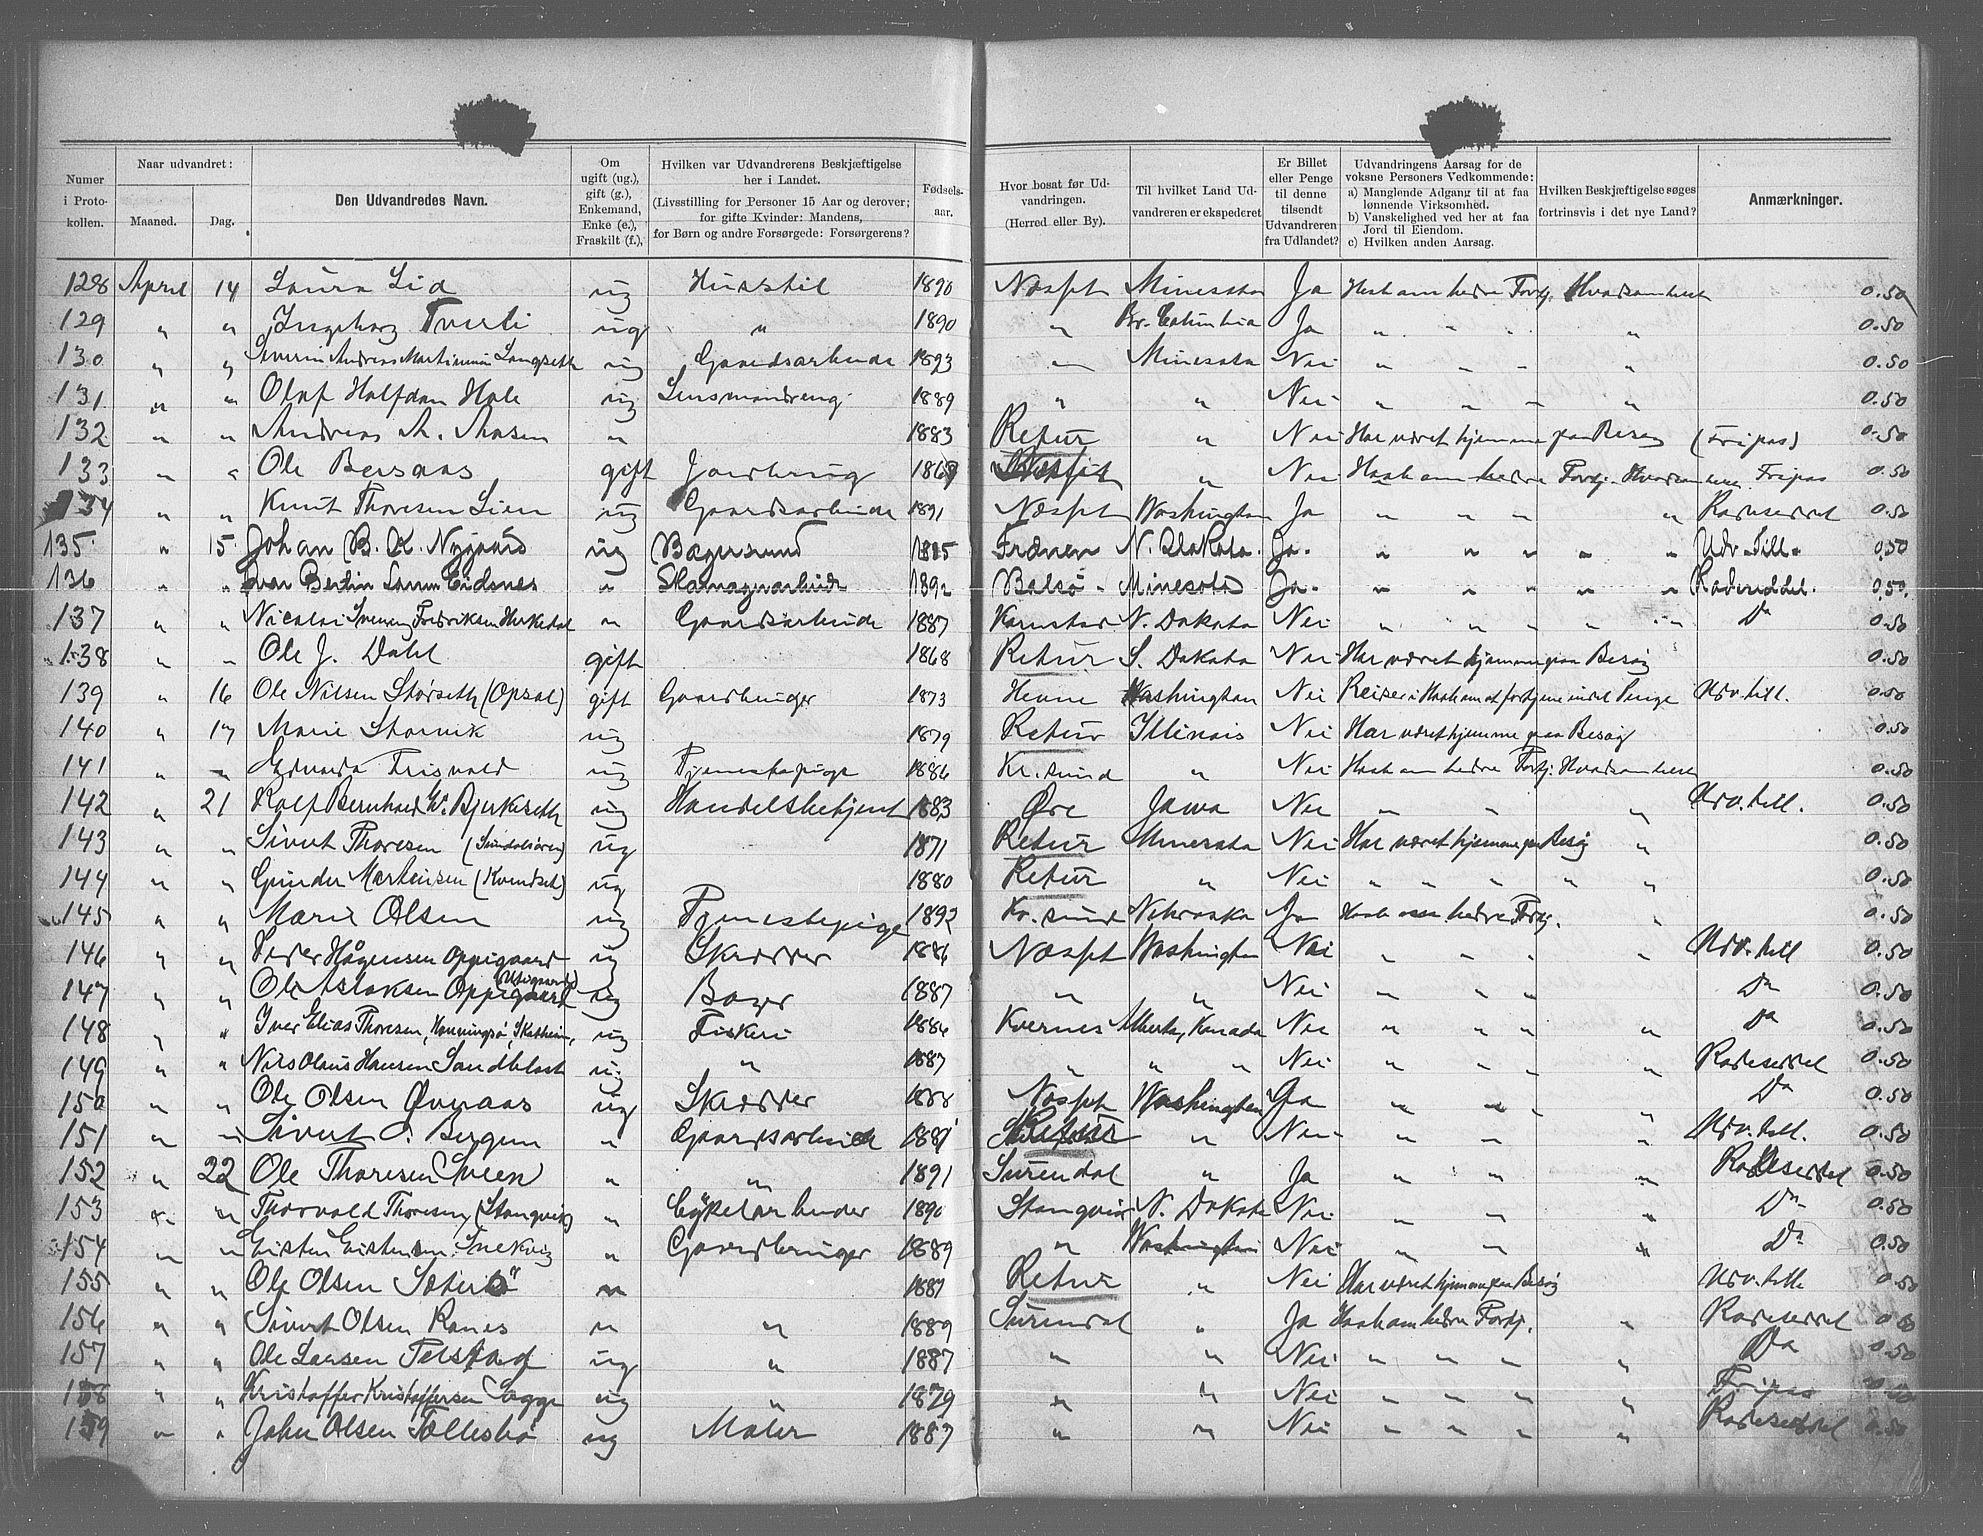 Numer i Protokollen.
Naar udvandret:
Maaned.
Dag.
Den Udvandredes Navn.
Om ugift (ug.), gift (g.), Enkemand, Enke (e.), Fraskilt (f.),
Hvilken var Udvandrerens Beskjæftigelse her i Landet.
(Livsstilling for Personer 15 Aar og derover; for gifte Kvinder: Mandens, for Børn og andre Forsørgede: Forsørgerens?
Fødsels-aar.
Hvor bosat før Udvandringen.
(Herred eller By).
Til hvilket Land Udvandreren er ekspederet
Er Billet eller Penge til denne tilsendt Udvandreren fra Udlandet?
Udvandringens Aarsag for de voksne Personers Vedkommende:
a) Manglende Adgang til at faa lønnende Virksomhed.
b) Vanskelighed ved her at faa Jord til Eiendom.
c) Hvilken anden Aarsag.
Hvilken Beskjæftigelse søges fortrinsvis i det nye Land?
Anmærkninger.
128 April 14 Laura Lid ug Husstil 1890 Næsset Minesota Ja Haab om bedre Fortj. Hvadsomhelst 0.50
129 " " Ingeborg Tverli ug " 1890 " Br. Columbia Ja " " " " 0.50
130 " " Severin Andreas Martinius Langseth ug Gaardsarbeide 1893 " Minesota Nei " " " " 0.50
131 " " Olaf Halfdan Hole ug Lensmandreng 1889 " " Nei " " " " 0.50
132 " " Andreas A. Aasen " 1883 Retur " Nei Har været hjemme paa Besøg (Fripas) 0.50
133 " " Ole Bersaas gift Jordbrug 1869 Næsset " Nei Haab om bedre Fortj. Hvadsomhelst Fripas 0.50
134 " " Knut Thoresen Lien ug Gaardsarbeide 1891 Næsset Washington Ja " " " " Rodeseddel 0.50
135 " 15 Johan B. K. Nygaard ug Bagersvend 1885 Frænen N. Dakota. Ja. " " " " " Udv. Till. 0.50
136 " " Ivar Bertin Larsen Eidsnes " 1892 Bolsø Minesota Ja. " " " " " Rodeseddel. 0.50.
137 " " Nicolai " Gaardsarbeide 1887 Kornstad N. Dakota Nei " " " " " Do 0.50
138 " " Ole J. Dahl gift 1868 Retur S. Dakota Nei Har været hjemme paa Besøg 0.50
139 " 16 Ole Nilsen Størseth (Opsal) gift Gaardbruger 1873 Hevne Washington Nei Reiser i Haab om at fortjene Penge Udv. till. 0.50
140 " 17 Marie Storvik ug 1879 Retur Illinois Nei Har været hjemme paa Besøg 0.50
141 " " Edvarda Frisvold ug Tjenestepige 1886 Kr. sund " Nei Haab om bedre Fortj. Hvadsomhelst 0.50
142 " 21 Rolf Bernhard Bjerkeseth ug Handelsbetjent 1883 Øre Jowa Nei " " " Udv. till. 0.50
143 " " Sivert Thoresen (Sundalsøren) ug 1871 Retur Minesota Nei Har været hjemme paa Besøg " 0.50
144 " " Gunder Martinsen (Kvendset) ug 1880 Retur " Nei " " " " " 0.50
145 " " Marie Olsen ug Tjenestepige 1892 Kr. sund Nebraska Ja Haab om bedre Fortj. " 0.50
146 " " Peder Hågensen Oppigaard ug Skrædder 1886 Næsset Washington Nei " " " " Udv. till 0.50
147 " " Ole Aslaksen Oppigaard (Utigaard) ug Bager 1887 " " Nei " " " Do 0.50
148 " " Iver Elias Thoresen, Henningsø, ug Fiskeri 1886 Kvernes Alberta, Kanada Nei " " " " Do 0.50
149 " " Nils Olaus Hansen Sandblaat ug " 1887 " " " Nei " " " " Rodeseddel 0.50
150 " " Ole Olsen Øveraas ug Skrædder 1888 Næsset Washington Ja " " " " Do 0.50
151 " " Sivert O. Bergem " Gaardsarbeide 1881 Retur " Nei " " " " Udv. till. 0.50
152 " 22 Ole Thoresen Sveen " " 1891 Surendal " Ja " " " " Rodeseddel 0.50
153 " " Thorvald Thoresen, (Stangvik) " Cykelarbeider 1890 Stangvik N. Dakota Nei " " " Do 0.50
154 " " Eisten Eistensen Snekvig " Gaardbruger 1889 " Washington Nei " " " Do 0.50
155 " " Ole Olsen Sæterbø " 1887 Retur " Nei Har været hjemme paa Besøg Udv. till 0.50
156 " " Sivert Olsen Ranes " " 1889 Surendal " Ja Haab om bedre Fortj. " Rodeseddel 0.50
157 " " Ole Larsen Telstad ug " 1887 " " Nei " " " " Do 0.50
158 " " Kristoffer Kristoffersen Sogge ug " 1879 " " Nei " " " " Fripas 0.50
159 " " John Olsen Tellesbø ug Maler 1887 " " Nei " " " " Rodeseddel 0.50